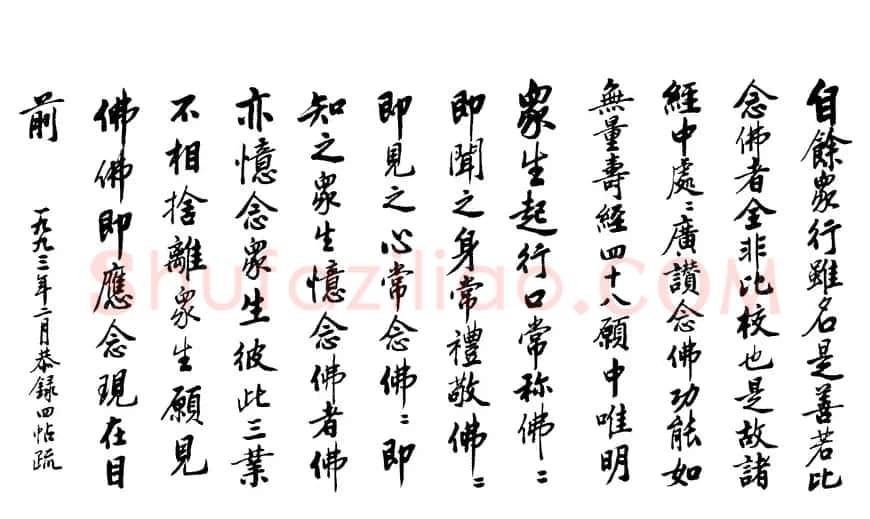 自餘眾行雖名是善若比
念佛者全非比校也是故諸
經中處〻廣讃念佛功能如
無量壽經四十八願中唯明
眾生起行口常称佛〻
即聞之身常禮敬佛〻
即見之心常念佛〻即
知之眾生憶念佛者佛
亦憶念眾生彼此三業
不相捨離眾生願見
佛佛即應念現在目
前
一九九三年二月恭録四帖疏
Shufaziliao.COM